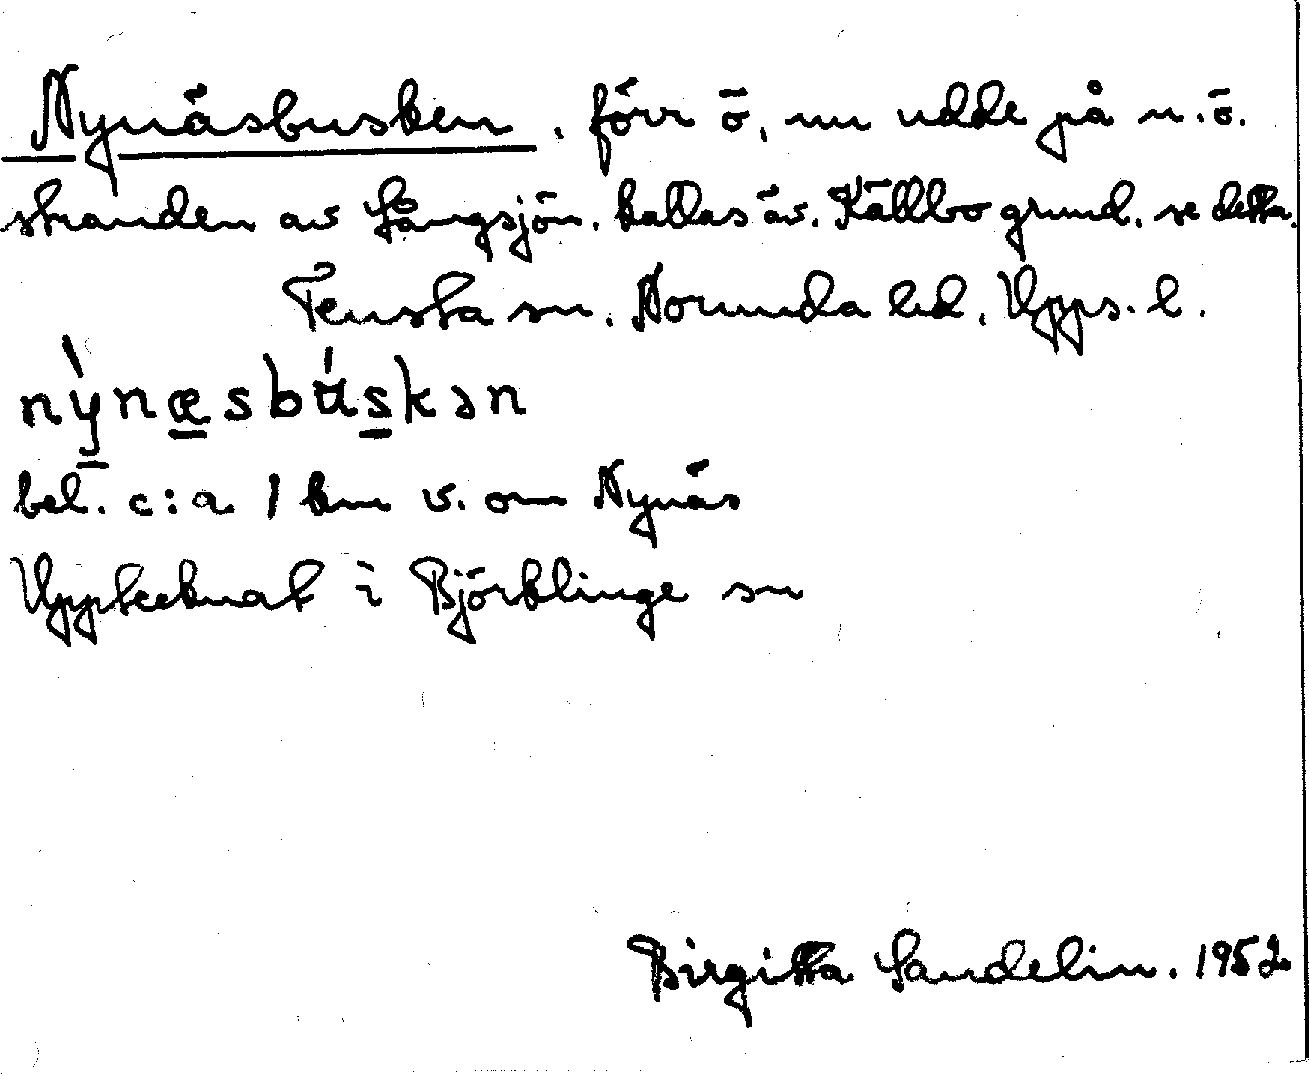 Nynäsbusken, förr ö, nu udde på n.ö.
stranden av Långsjön, kallas äv. Källbo grund, se detta.
Tensta sn. Norunda hd, Upps. l.
nỳnæsbúskən
bel. c:a 1 km v. om Nynäs
Upptecknat i Björklinge sn
Birgitta Sandelin. 1952.